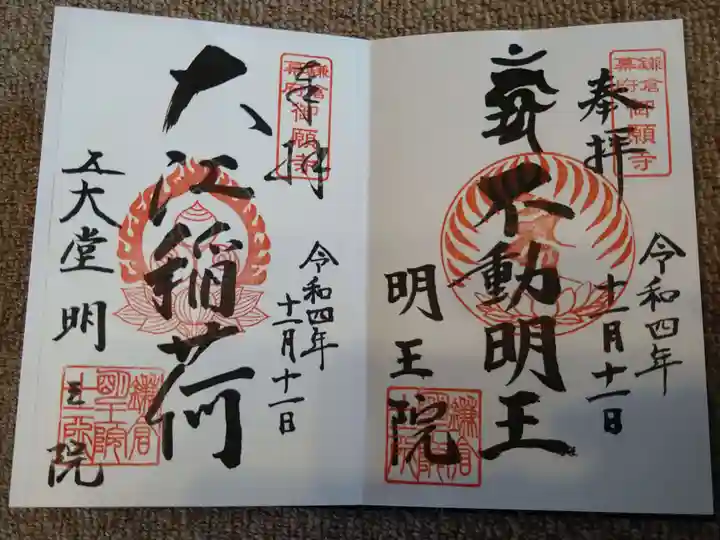 鎌倉
幕府
御願寺
奉拝
令和四年
十一月十一日
不動明王
明王院
鎌倉
鎌倉
幕府
御願寺
奉拝
令和四年
十一月十一日
大江稲荷
五大堂 明王院
鎌倉
明王院